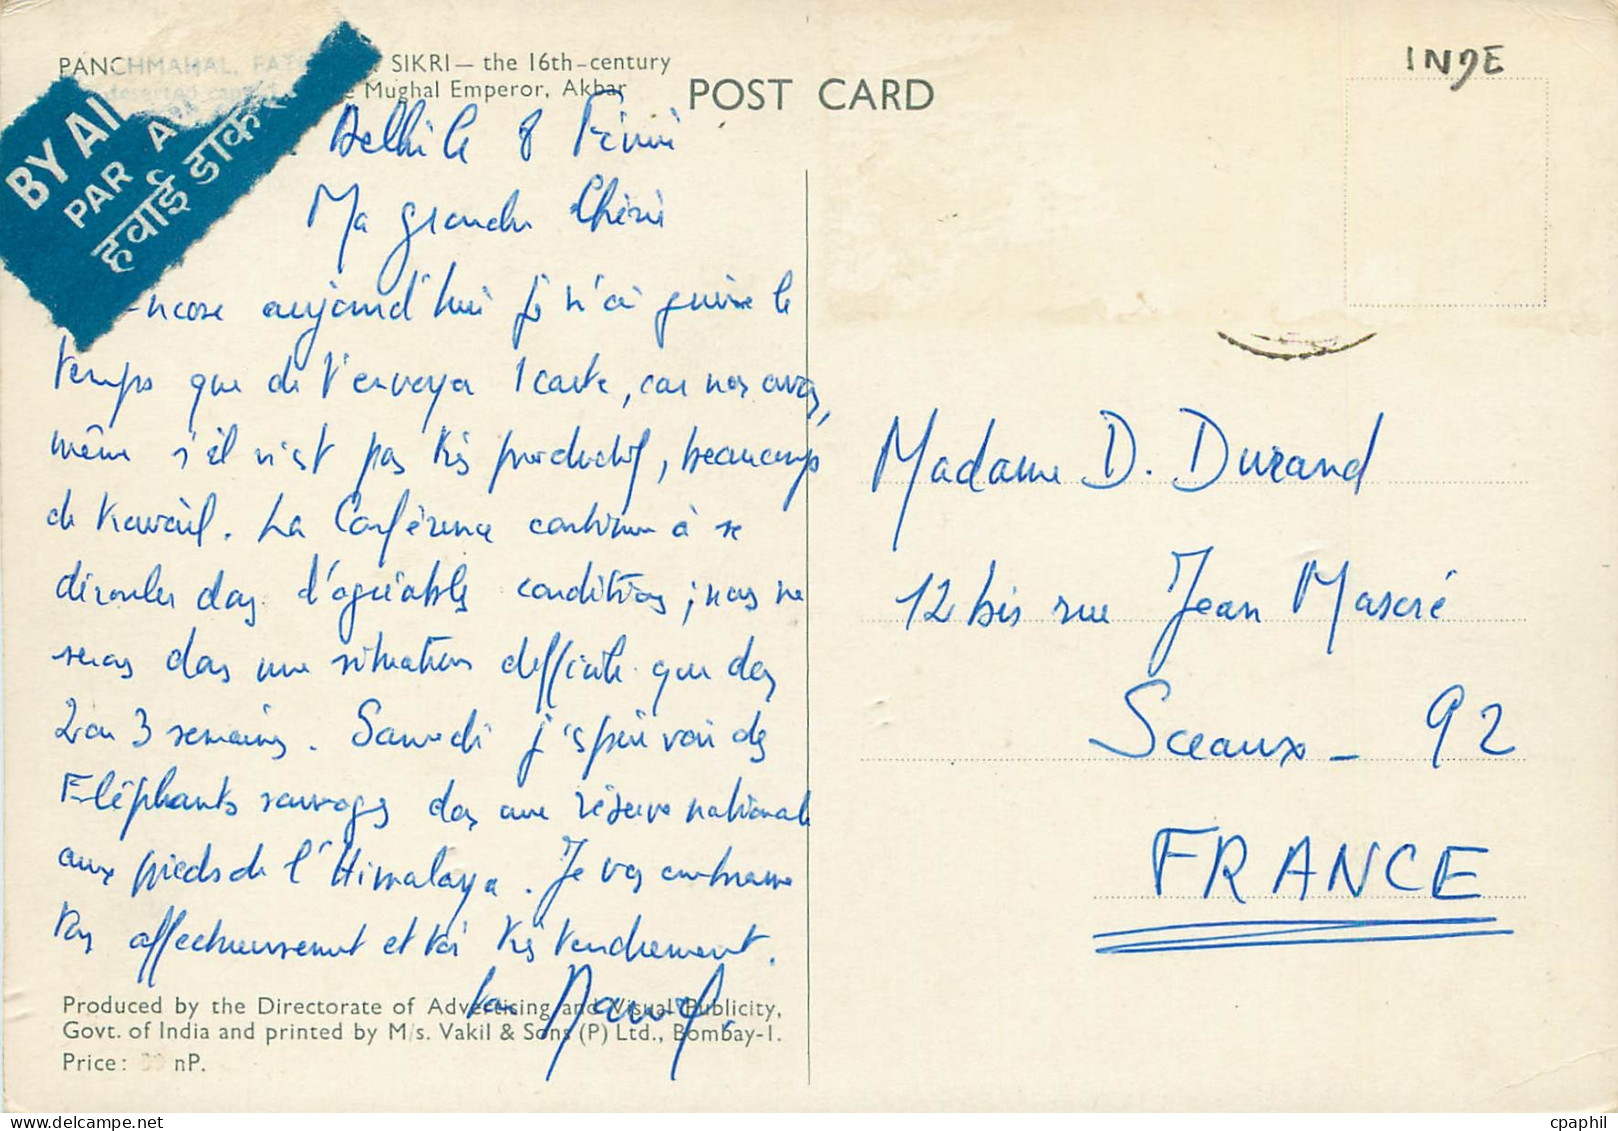 PANCHMAHAL, FATEHPUR SIKRI — the 16th-century
deserted capital of the Mughal Emperor, Akbar
POST CARD
INDE
BY AI
PAR A
हवाई डाक
Delhi le 8 Février
Ma grande Chérie
Encore aujourd'hui je n'ai guère le
temps que de t'envoyer 1 carte, car nous avons,
même s'il n'est pas très productif, beaucoup
de travail. La Conférence continue à se
dérouler dans d'agréables conditions ; nous ne
serons dans une situation difficile que dans
2 ou 3 semaines. Samedi j'espère voir des
Eléphants sauvages dans une réserve nationale
aux pieds de l'Himalaya. Je vous embrasse
tous affectueusement et toi très tendrement.
Madame D. Durand
12 bis rue Jean Mascré
Sceaux - 92
FRANCE
Produced by the Directorate of Advertising and Visual Publicity,
Govt. of India and printed by M/s. Vakil & Sons (P) Ltd., Bombay-1.
Price: nP.
cpaphil